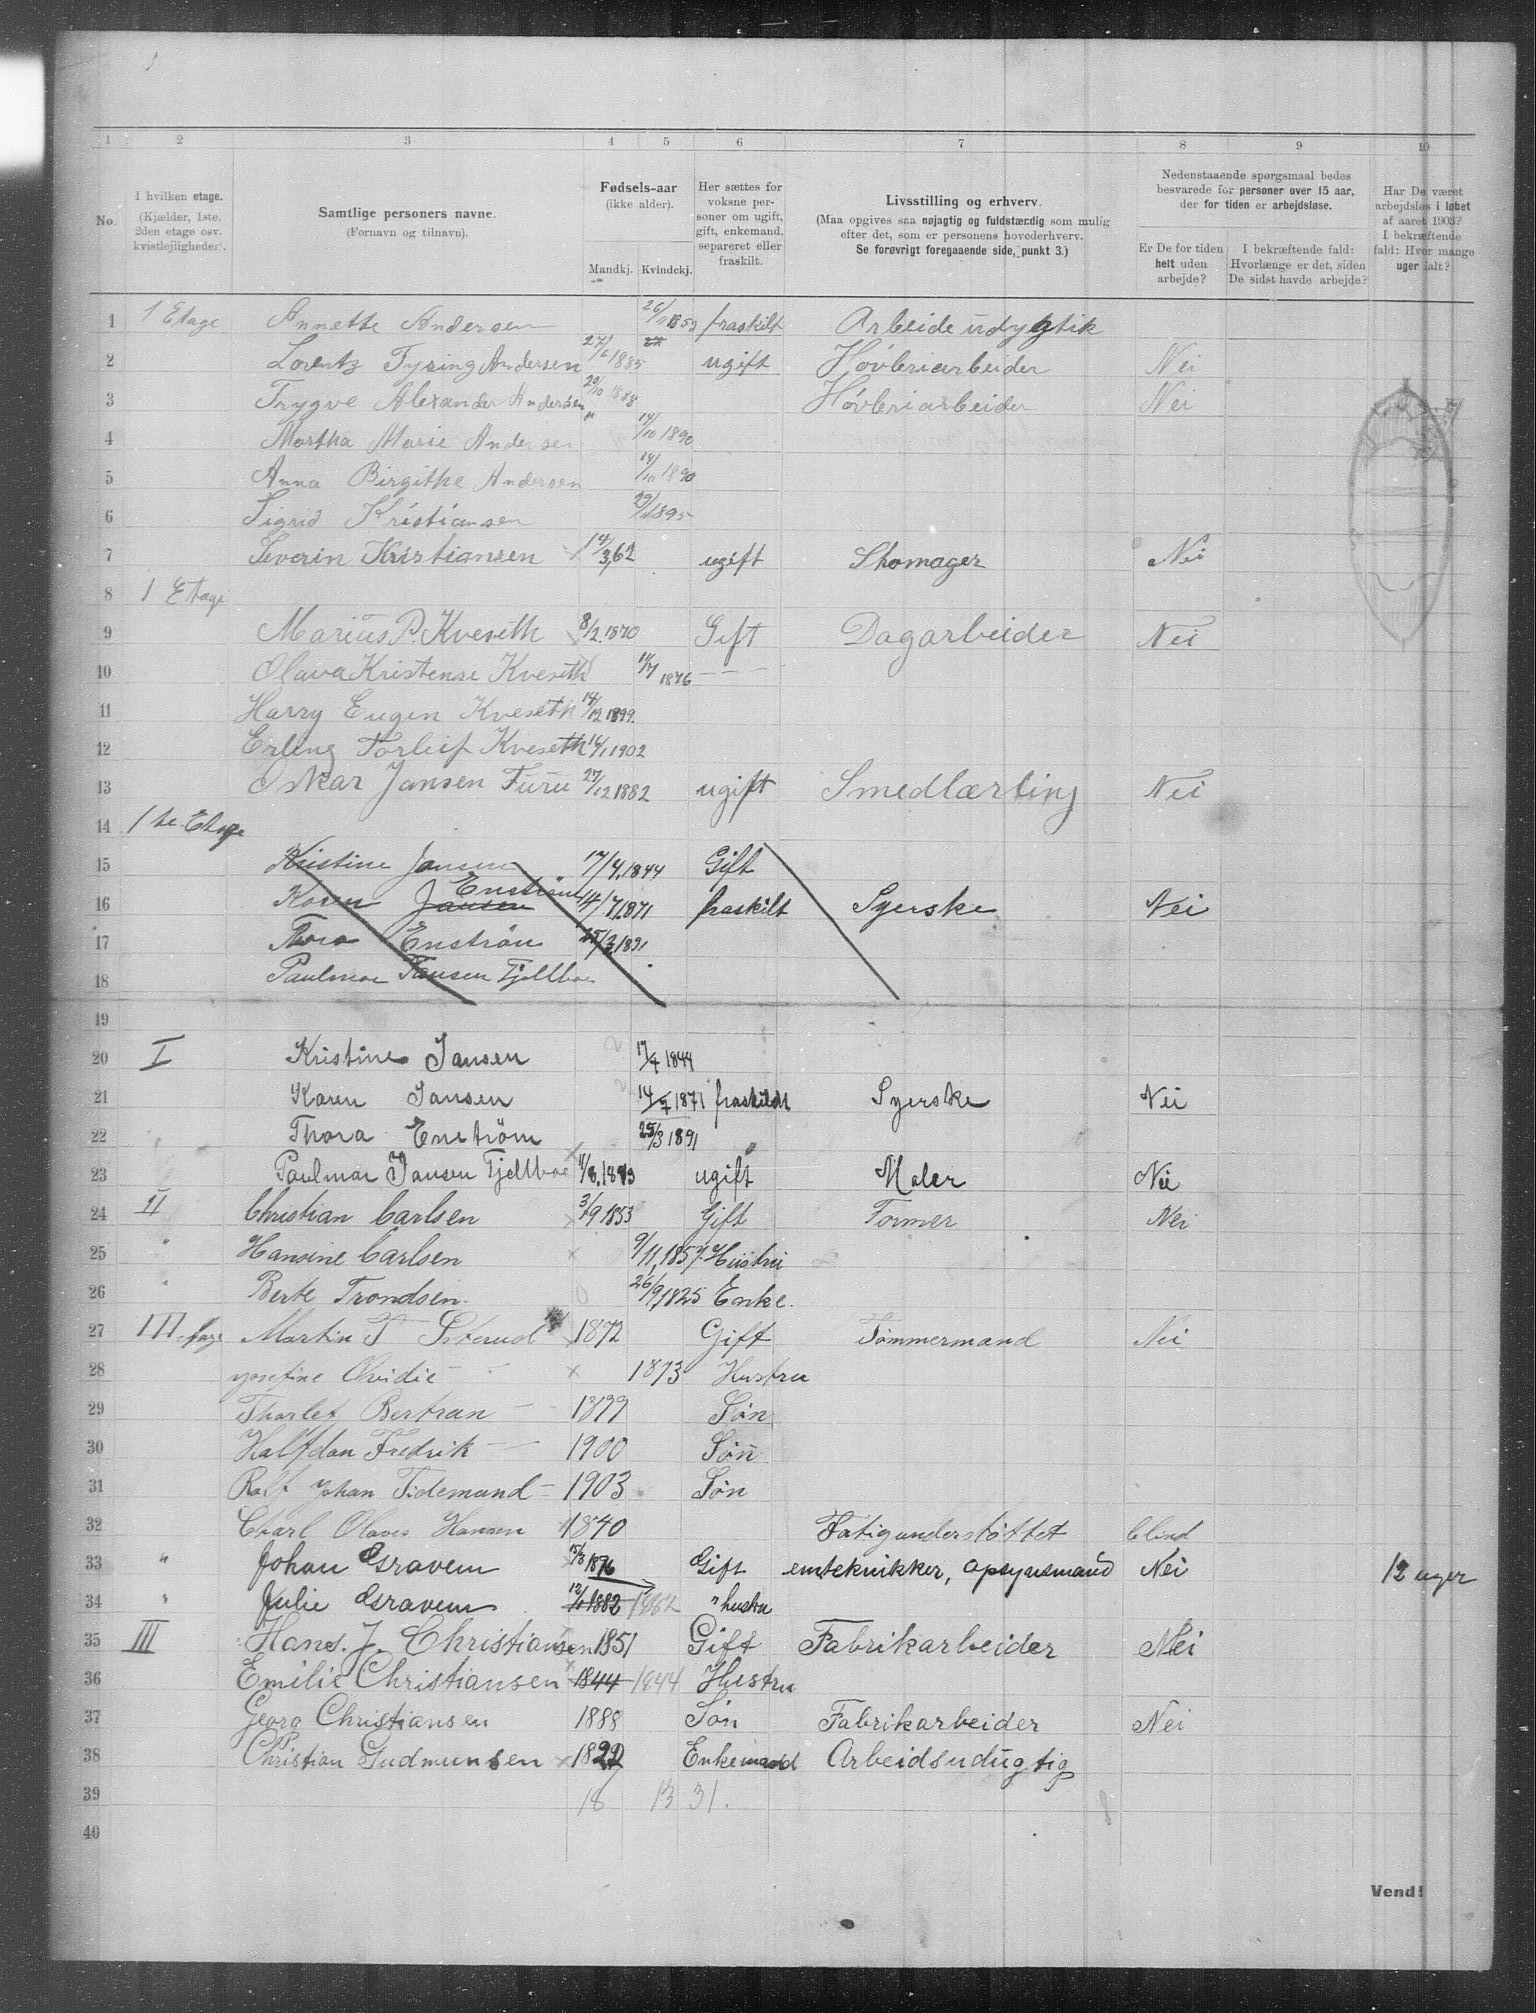 1 2 3 4 5 6 7 8 9 10
No.
I hvilken etage.
(Kjælder, 1ste, 2den etage osv. kvistlejligheder).
Samtlige personers navne.
(Fornavn og tilnavn).
Fødsels-aar
(ikke alder).
Mandkj. Kvindekj.
Her sættes for voksne personer om ugift, gift, enkemand, separeret eller fraskilt.
Livsstilling og erhverv.
(Maa opgives saa nøjagtig og fuldstændig som mulig
efter det, som er personens hovederhverv.
Se forøvrigt foregaaende side, punkt 3.)
Nedenstaaende spørgsmaal bedes
besvarede for personer over 15 aar,
der for tiden er arbejdsløse.
Er De for tiden helt uden arbejde?
I bekræftende fald: Hvorlænge er det, siden De sidst havde arbejde?
Har De været arbejdsløs i løbet af aaret 1903? I bekræftende fald: Hvor mange uger ialt?
1 1 Etage Annette Andersen 26/11 1853 fraskilt Arbeide udygtik
2 Lorentz Tyring Andersen 27/6 1885 ugift Høvleriarbeider Nei
3 Trygve Alexander Andersen 20/10 1888 Høvleriarbeider Nei
4 Martha Marie Andersen 14/10 1890
5 Anna Birgithe Andersen 14/10 1890
6 Sigrid Kristiansen 29/ 1895
7 Severin Kristiansen 14/3,62 ugift Skomager Nei
8 1 Etage
9 Marius P. Kveseth 8/2 1870 Gift Dagarbeider Nei
10 Olava Kristense Kveseth 11/7 1876 — —
11 Harry Eugen Kveseth 14/12 1899.
12 Erling Torleif Kveseth 16/1 1902
13 Oskar Jansen Furu 27/12 1882 ugift Smedlærling Nei
14 1te Etage
15 Kristine Jansen 17/4.1844 Gift
16 Karen Jansen Enström 14/7.1871 fraskilt Syerske Nei
17 Thora Enström 25/3.1891
18 Paulmar Jansen Fjellboe
19
20 I Kristine Jansen 17/4 1844
21 Karen Jansen 14/7 1871 fraskildt Syerske Nei
22 Thora Enström 25/3 1891
23 Paulmar Jansen Fjellboe /8.1883 ugift Maler Nei
24 II Christian Carlsen 3/9 1853 Gift Former Nei
25 " Hansine Carlsen 9/11,1857 Hustru
26 " Berte Trondsen. 26/9,1825 Enke.
27 III Martin T 1872 Gift Tømmermand Nei
28 Josefine Olvidie — 1873 Hustru
29 Thorlef Bertran — 1899 Søn
30 Halfdan Fredrik — 1900 Søn
31 Rolf Johan Tidemand — 1903 Søn
32 Charl Olaves Hansen 1840 Fatigunderstøttet blind
33 " Johan Gravem 15/8 1876 Gift emteknikker, opsynsmand Nei 12 uger
34 " Julie Gravem 12/ 1882 1882 " hustru
35 III Hans. J. Christiansen 1851 Gift Fabrikarbeider Nei
36 Emilie Christiansen 1844 1844 Hustru
37 Georg Christiansen 1888 Søn Fabrikarbeider Nei
38 Christian Gudmunsen 1822 Enkemand Arbeidsudügtig
39 18 13 31.
40
Vend!